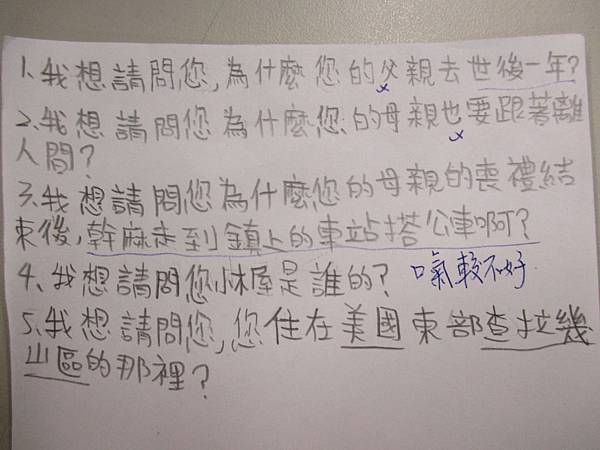 1.我想請問您,為什麼您的父親去世後一年?
2.我想請問您為什麼您的母親也要跟著離
人間?
3.我想請問您為什麼您的母親的喪禮結
束後,幹麻走到鎮上的車站搭公車啊?
4、我想請問您小木屋是誰的? 口氣較不好
5.我想請問您,您住在美國東部查拉幾
山區的那裡?